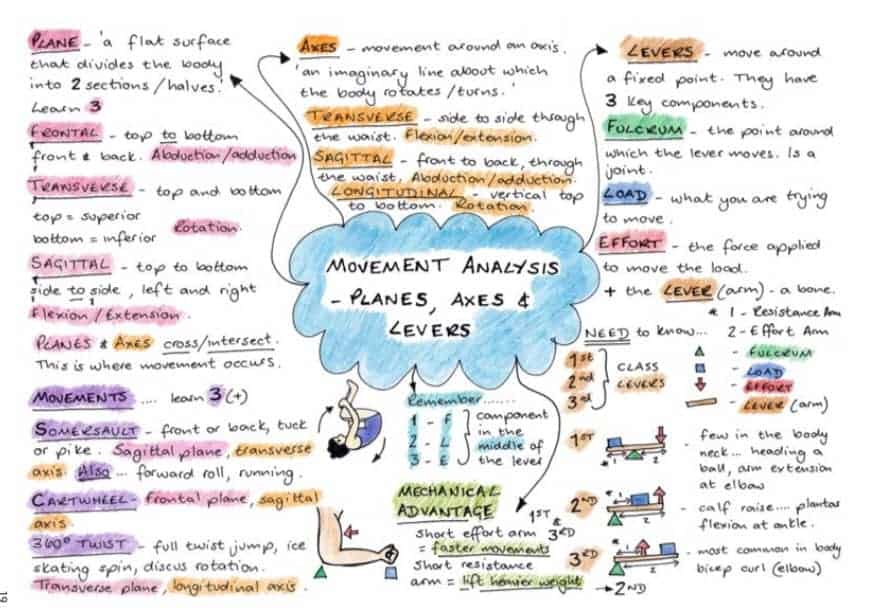 PLANE - 'a flat surface
that divides the body
into 2 sections/halves.'
Learn 3
FRONTAL - top to bottom
front & back. Abduction/adduction
TRANSVERSE - top and bottom
top = superior
bottom = inferior
Rotation.
SAGITTAL - top to bottom
side to side, left and right
Flexion/Extension.
PLANES & AXES cross/intersect.
This is where movement occurs.
MOVEMENTS .... learn 3(+)
SOMERSAULT - front or back, tuck
or pike. Sagittal plane, transverse
axis. Also ... forward roll, running.
CARTWHEEL - frontal plane, sagittal
axis.
360° TWIST - full twist jump, ice
skating spin, discus rotation.
Transverse plane, longitudinal axis.
AXES - movement around an axis.
'an imaginary line about which
the body rotates/turns.'
TRANSVERSE - side to side through
the waist. Flexion/extension.
SAGITTAL - front to back, through
the waist. Abduction/adduction.
LONGITUDINAL - vertical top
to bottom. Rotation.
MOVEMENT ANALYSIS
- PLANES, AXES &
LEVERS
Remember.......
1 - F
2 - L
3 - E
component
in the
middle of
the lever
MECHANICAL
ADVANTAGE
1ST
&
3RD
short effort arm
= faster movements
short resistance
arm = lift heavier weight
→ 2ND
LEVERS - move around
a fixed point. They have
3 key components.
FULCRUM - the point around
which the lever moves. Is a
joint.
LOAD - what you are trying
to move.
EFFORT - the force applied
to move the load.
+ the LEVER (arm) - a bone.
* 1 - Resistance Arm
2 - Effort Arm
NEED to know...
1st
2nd
3rd
CLASS
LEVERS
- FULCRUM
- LOAD
- EFFORT
- LEVER (arm)
1ST
* 1
2
- few in the body
neck... heading a
ball, arm extension
at elbow
2ND
* 1
2
- calf raise.... plantar
flexion at ankle.
3RD
* 1
2
- most common in body
bicep curl (elbow)
19